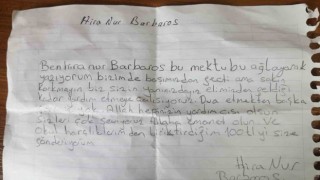 Hira Nur Barbaros
Ben hira nur Barbaros bu mektubu ağlayarak
yazıyorum bizimde başımızdan geçti ama sakın
Korkmayın biz sizin yanınızdayız elimizden geldiği
kadar yardım etmeye çalışıyoruz Dua etmekten başka
Allah hepinizin yardımcısı olsun
Sizleri çok seviyoruz Allaha emanet olun Ve
Okul harçlıklarımdan biriktirdiğim 100 tl yi size
gönderiyorum
Hira Nur
Barbaros